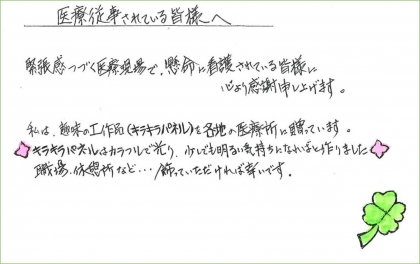 医療従事されている皆様へ
緊張感つづく医療現場で、懸命に看護されている皆様に
心より感謝申し上げます。
私は、趣味の工作品(キラキラパネル)を各地の医療所に贈っています。
キラキラパネルはカラフルで光り、少しでも明るい気持ちになればと作りました
職場、休憩所など…飾っていただければ幸いです。